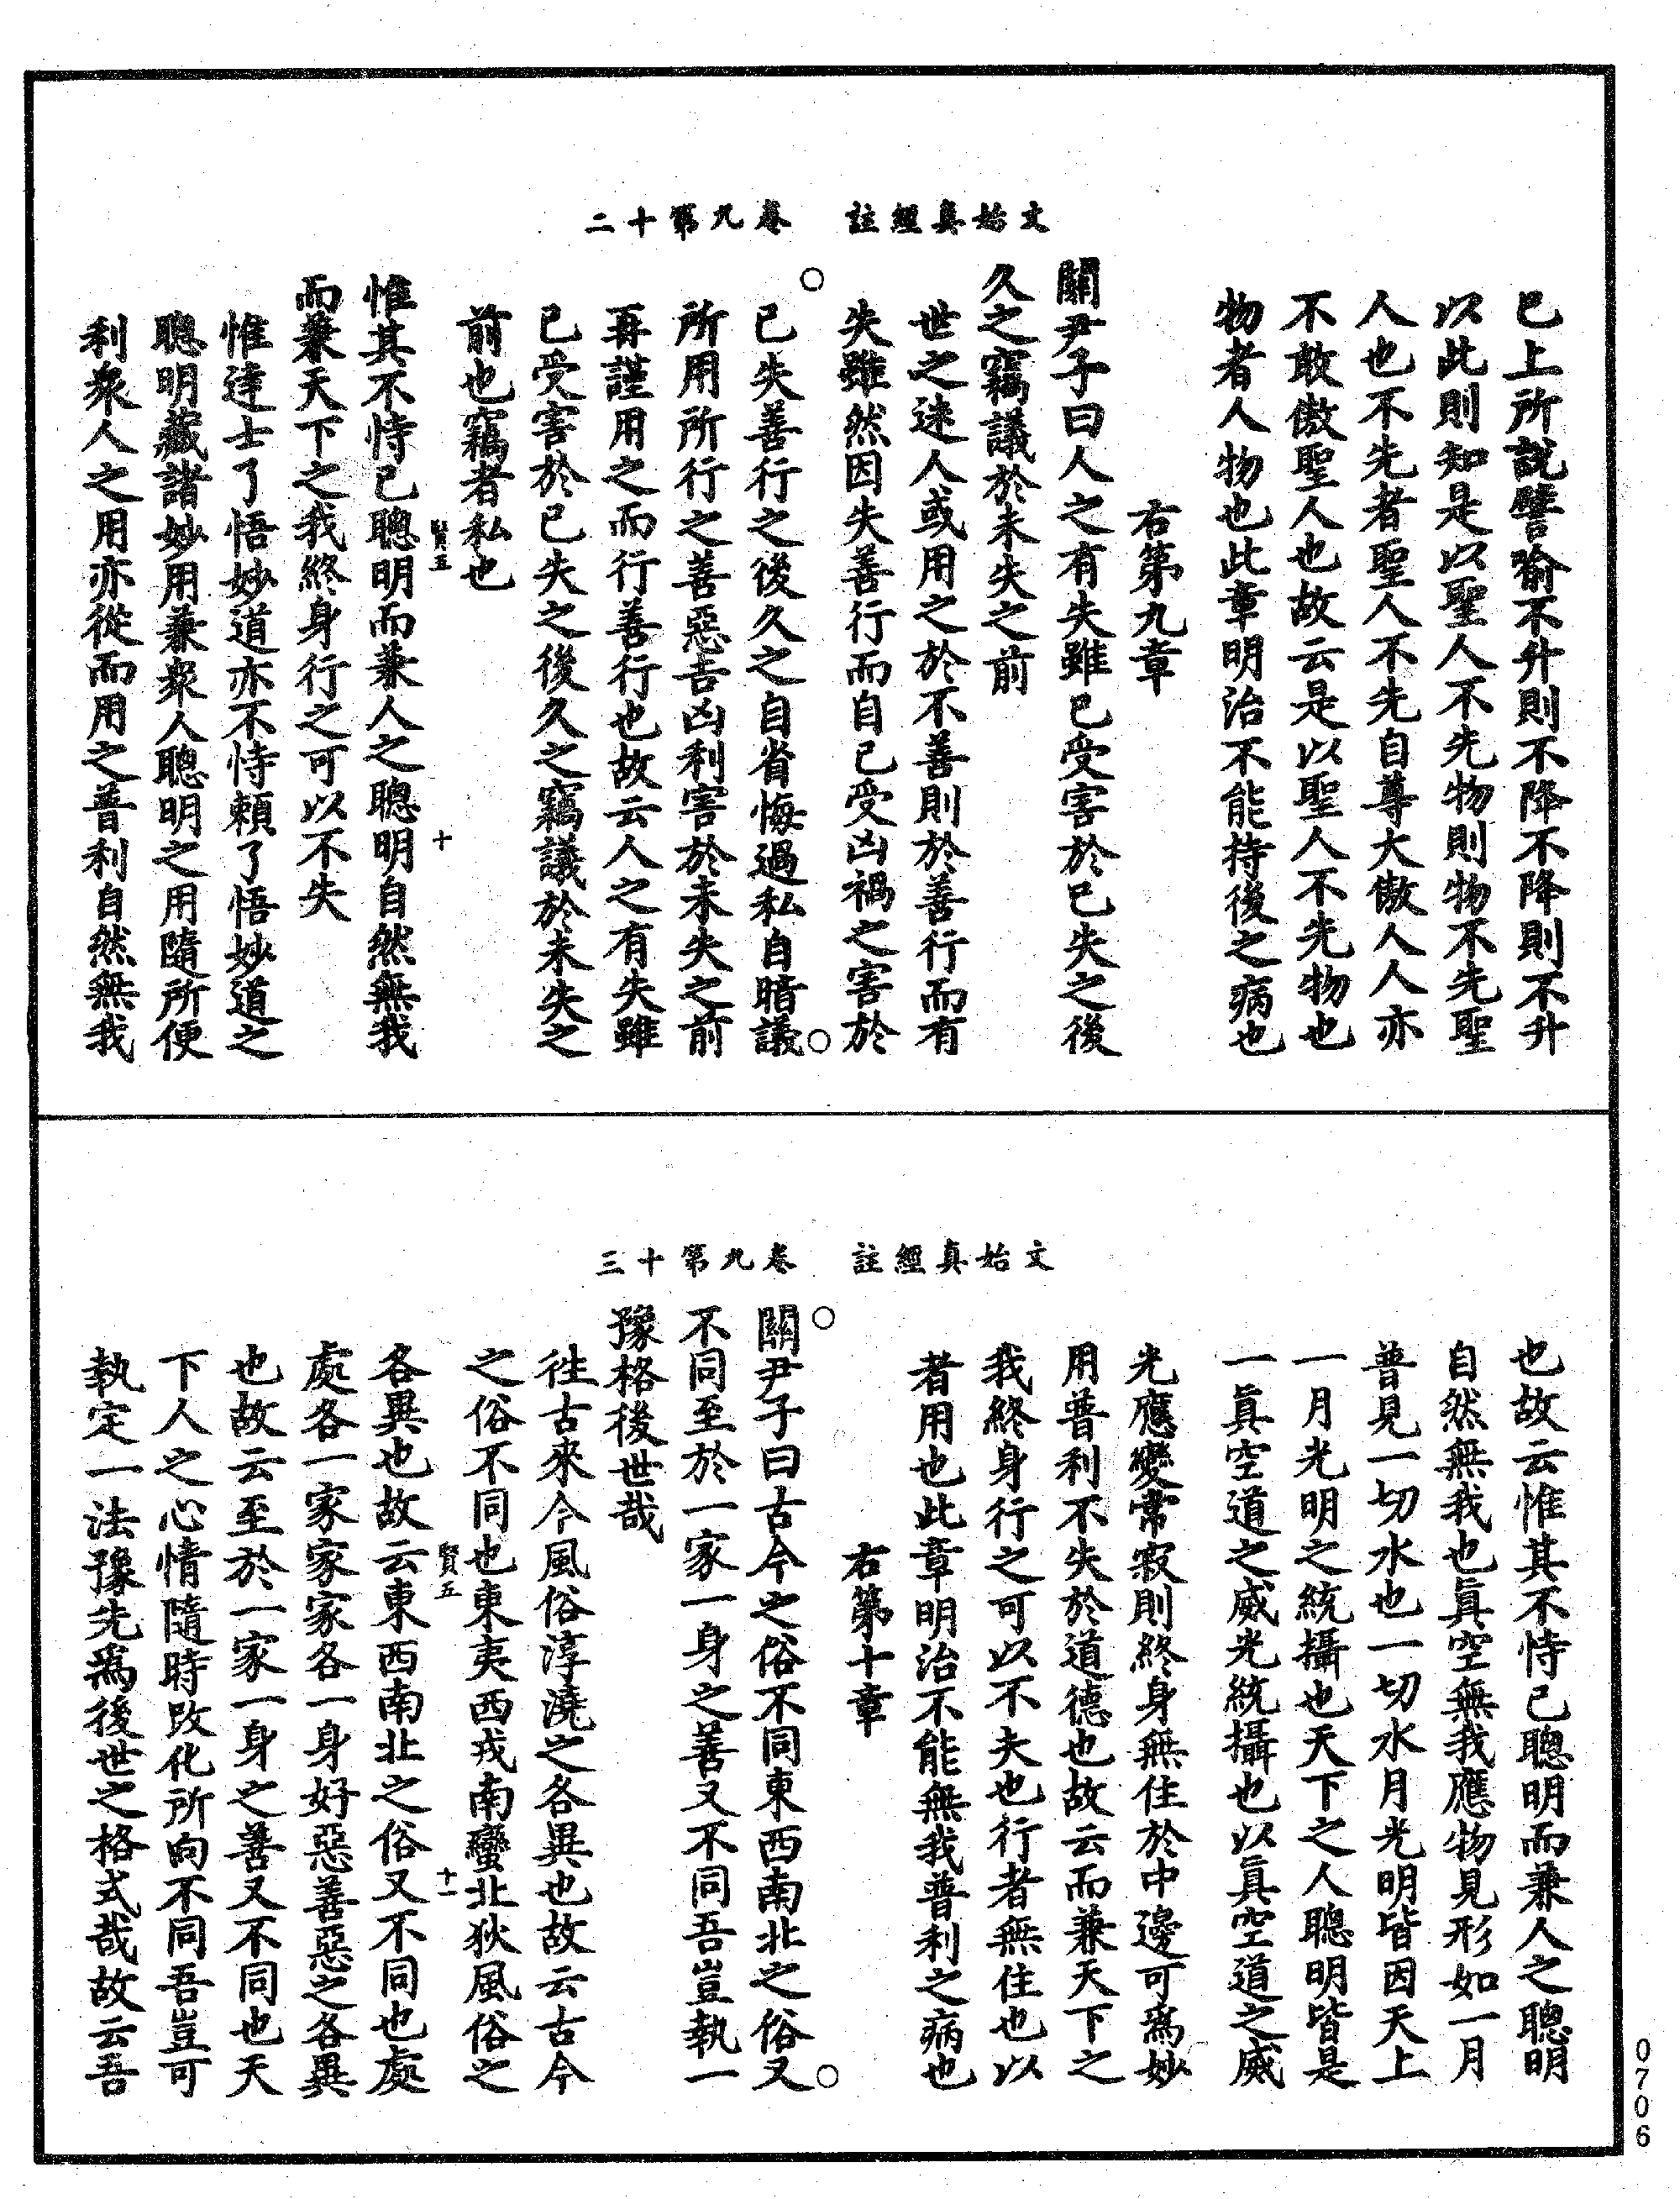 文始真經註　卷九第十二
已上所說譬喻不升則不降不降則不升
以此則知是以聖人不先物則物不先聖
人也不先者聖人不先自尊大傲人人亦
不敢傲聖人也故云是以聖人不先物也
物者人物也此章明治不能持後之病也
右第九章
關尹子曰人之有失雖已受害於已失之後
久之竊議於未失之前
世之迷人或用之於不善則於善行而有
失雖然因失善行而自已受凶禍之害於
已失善行之後久之自省悔過私自暗議
所用所行之善惡吉凶利害於未失之前
再謹用之而行善行也故云人之有失雖
已受害於已失之後久之竊議於未失之
前也竊者私也
賢五　十
惟其不恃已聰明而兼人之聰明自然無我
而兼天下之我終身行之可以不失
惟達士了悟妙道亦不恃賴了悟妙道之
聰明藏諸妙用兼衆人聰明之用隨所便
利衆人之用亦從而用之普利自然無我
文始真經註　卷九第十三
也故云惟其不恃已聰明而兼人之聰明
自然無我也眞空無我應物見形如一月
普見一切水也一切水月光明皆因天上
一月光明之統攝也天下之人聰明皆是
一眞空道之威光統攝也以眞空道之威
光應變常寂則終身無住於中邊可爲妙
用普利不失於道德也故云而兼天下之
我終身行之可以不夫也行者無住也以
者用也此章明治不能無我普利之病也
右第十章
關尹子曰古今之俗不同東西南北之俗又
不同至於一家一身之善又不同吾豈執一
豫格後世哉
徃古來今風俗淳澆之各異也故云古今
之俗不同也東夷西戎南蠻北狄風俗之
賢五　十一
各異也故云東西南北之俗又不同也處
處各一家家家各一身好惡善惡之各異
也故云至於一家一身之善又不同也天
下人之心情隨時改化所向不同吾豈可
執定一法豫先爲後世之格式哉故云吾
0706